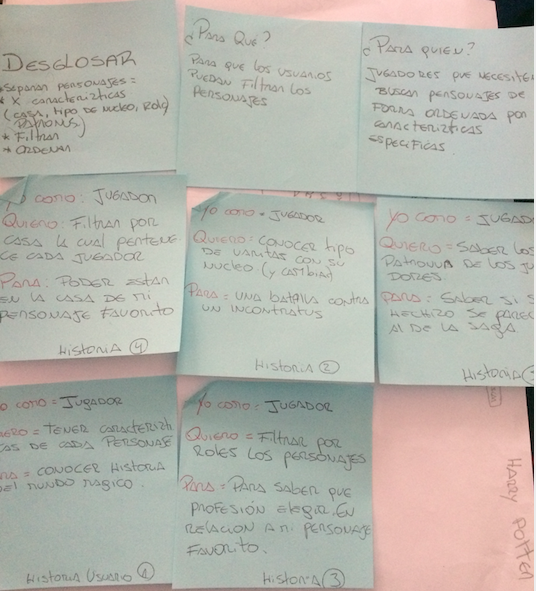 DESGLOSAR
*SEPARAR PERSONAJES =
* X CARACTERIZTICAS
(CASA, TIPO DE NUCLEO, ROLE)
PATRONUS)
* FILTRAR
* ORDENAR
¿PARA QUÉ?
PARA QUE LOS USUARIOS
PUEDAN FILTRAR LOS
PERSONAJES
¿PARA QUIEN?
JUGADORES QUE NECESITE
BUSCAR PERSONAJES DE
FORMA ORDENADA POR
CARACTERIZTICAS
ESPECIFICAS.
YO COMO: JUGADOR
QUIERO: FILTRAR POR
CASA LA CUAL PERTENE
CE CADA JUGADOR
PARA: PODER ESTAR
EN LA CASA DE MI
PERSONAJE FAVORITO
HISTORIA 4
YO COMO = JUGADOR
QUIERO: CONOCER TIPO
DE VARITAS CON SU
NUCLEO (Y CAMBIAR)
PARA = UNA BATALLA CONTRA
UN INCONTRATUS
HISTORIA 2
YO COMO = JUGAD
QUIERO = SABER LOS
DE LOS JU
DORES.
PARA: SABER SI S
HECHIZO SE PAREC
AL DE LA SAGA
HISTORIA
O COMO = JUGADOR
ERO = TENER CARACTERIZTI
CAS DE CADA PERSONAJE
RA = CONOCER HISTORIA
EL MUNDO MAGICO.
HISTORIA USUARIO 1
YO COMO = JUGADOR
QUIERO = FILTRAR POR
ROLES LOS PERSONAJES
PARA = PARA SABER QUE
PROFESIÓN ELEGIR. EN
RELACION A MI PERSONAJE
FAVORITO.
HISTORIA 3
HARRY POTTER